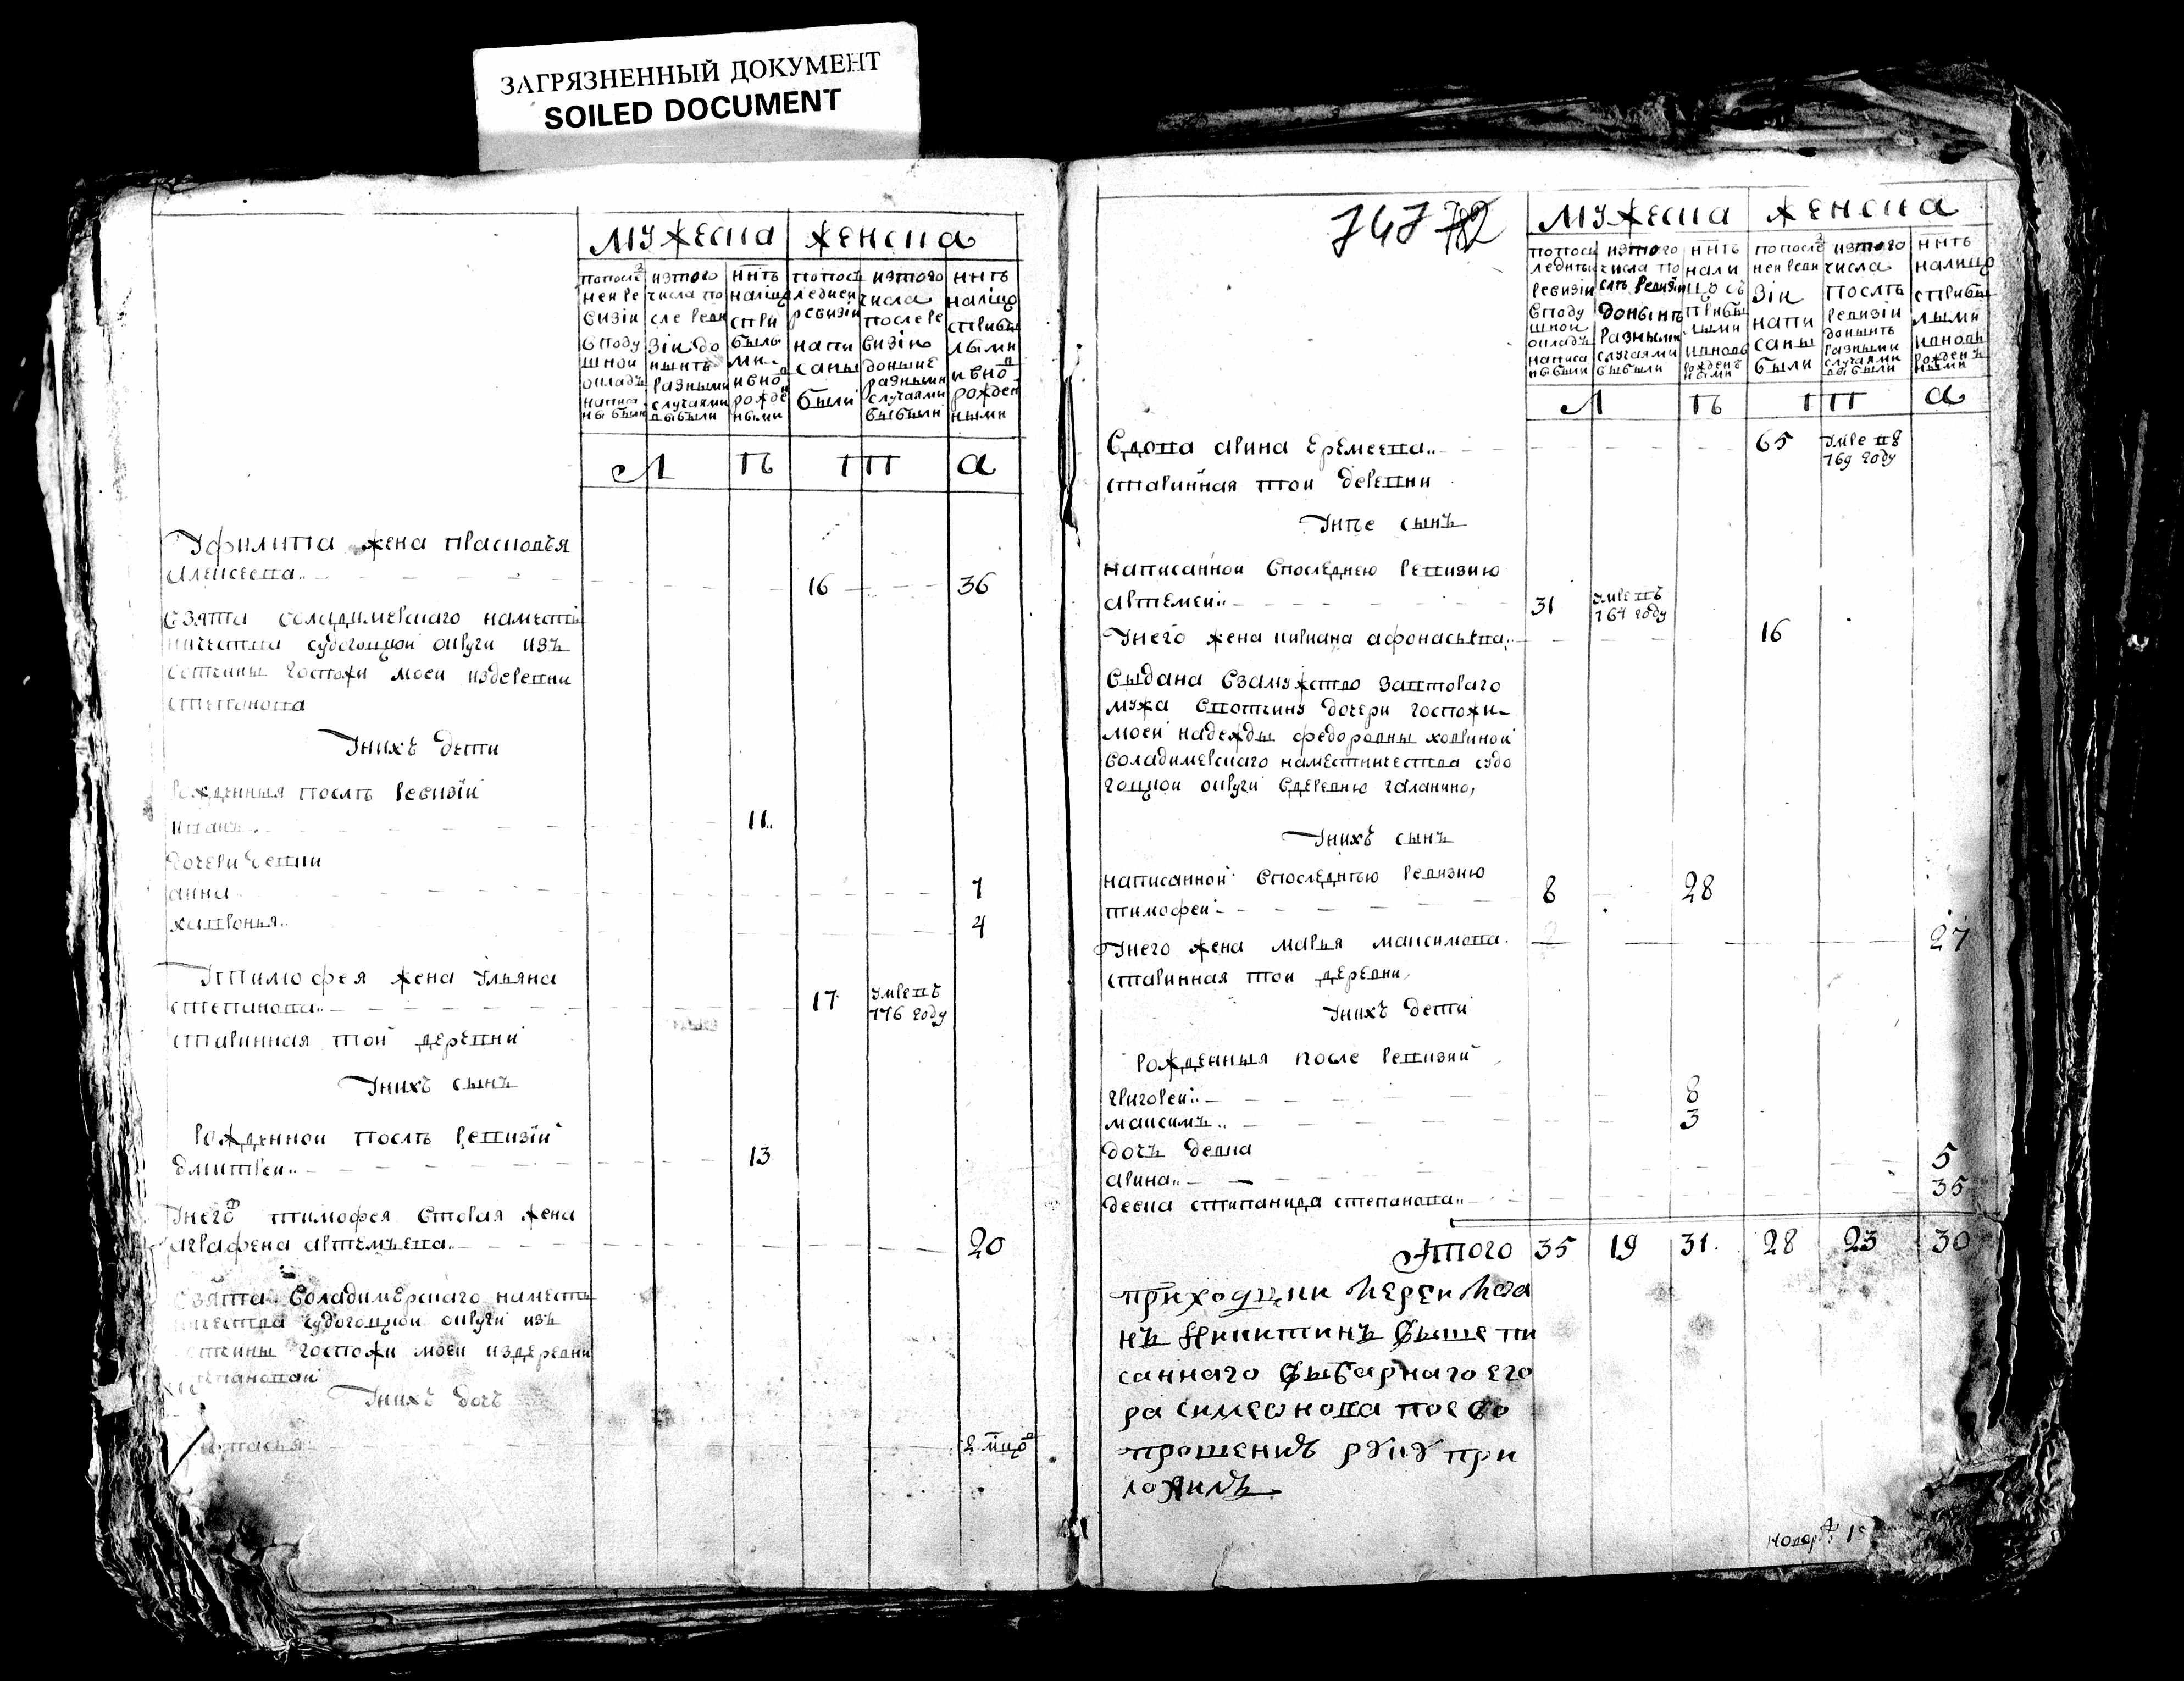 ЗАГРЯЗНЕННЫЙ ДОКУМЕНТ
SOILED DOCUMENT
мужеска женска
по после
ней ре
визіи
в поду
шной
окладъ
написа
ны были
изтого
числа по
сле реви
зіи до
нынѣ
разными
случаями
выбыли
ннѣ
налицо
спри
былы
ми
ивно
рожде
ными
по посл
ледней
ревизіи
напи
саны
были
изтого
числа
после ре
визіи
доныне
разными
случаями
выбыли
ннѣ
налицо
сприбы
лыми
ивно
рожден
ными
Л Ѣ Т А
У филипа жена прасковья
алексеева 16 36
взята володимерскаго наместъ
ничества судогоцкой округи изъ
вотчины госпожи моей издеревни
степанова
У нихъ дети
рожденныя послѣ ревизіи
иванъ 11
дочери девки
анна 7
хавронья 4
У тимофея жена ульяна
степанова 17 умре въ
776 году
старинная той деревни
У нихъ сынъ
рожденной послѣ ревизіи
дмитреи 13
У него тимофея вторая жена
аграфена артемьева 20
взята володимерскаго наместъ
ничества судогоцкой округи изъ
вотчины госпожи моей издеревни
степановой
У нихъ дочь
2 мцо
747 782
мужеска женска
по посл
ледней
ревизіи
в поду
шной
окладъ
написа
ны были
изтого
числа по
слѣ ревизіи
донынѣ
разными
случаями
выбыли
ннѣ
нали
цо съ
прибы
лыми
ивновь
рожденъ
ными
по после
ней реви
зіи
напи
саны
были
изтого
числа
послѣ
ревизіи
донынѣ
разными
случаями
выбыли
ннѣ
налицо
сприбы
лыми
ивновь
рожденъ
ными
Л Ѣ Т А
Вдова арина еремеева 65 умре в
769 году
старинная той деревни
У нее сынъ
написанной впоследнею ревизию
артемей 31 умре въ
764 году
У него жена кириана афонасьева 16
выдана взамужство завтораго
мужа ввотчину дочери госпожи
моей надежды федоровны
володимерскаго наместничества судо
гоцкой округи вдеревню галанино,
У нихъ сынъ
написанной впоследнѣю ревизию
тимофеи 8 28
У него жена марья максимова 27
старинная той деревни
У нихъ дети
рожденныя после ревизии
григореи 8
максимъ 3
дочь девка
арина 5
девка стипанида степанова 35
Итого 35 19 31 28 23 30
приходцкии иереи иоа
нъ никитинъ выше пи
саннаго выборнаго его
ра симеонова по ево
прошению руку при
ложилъ